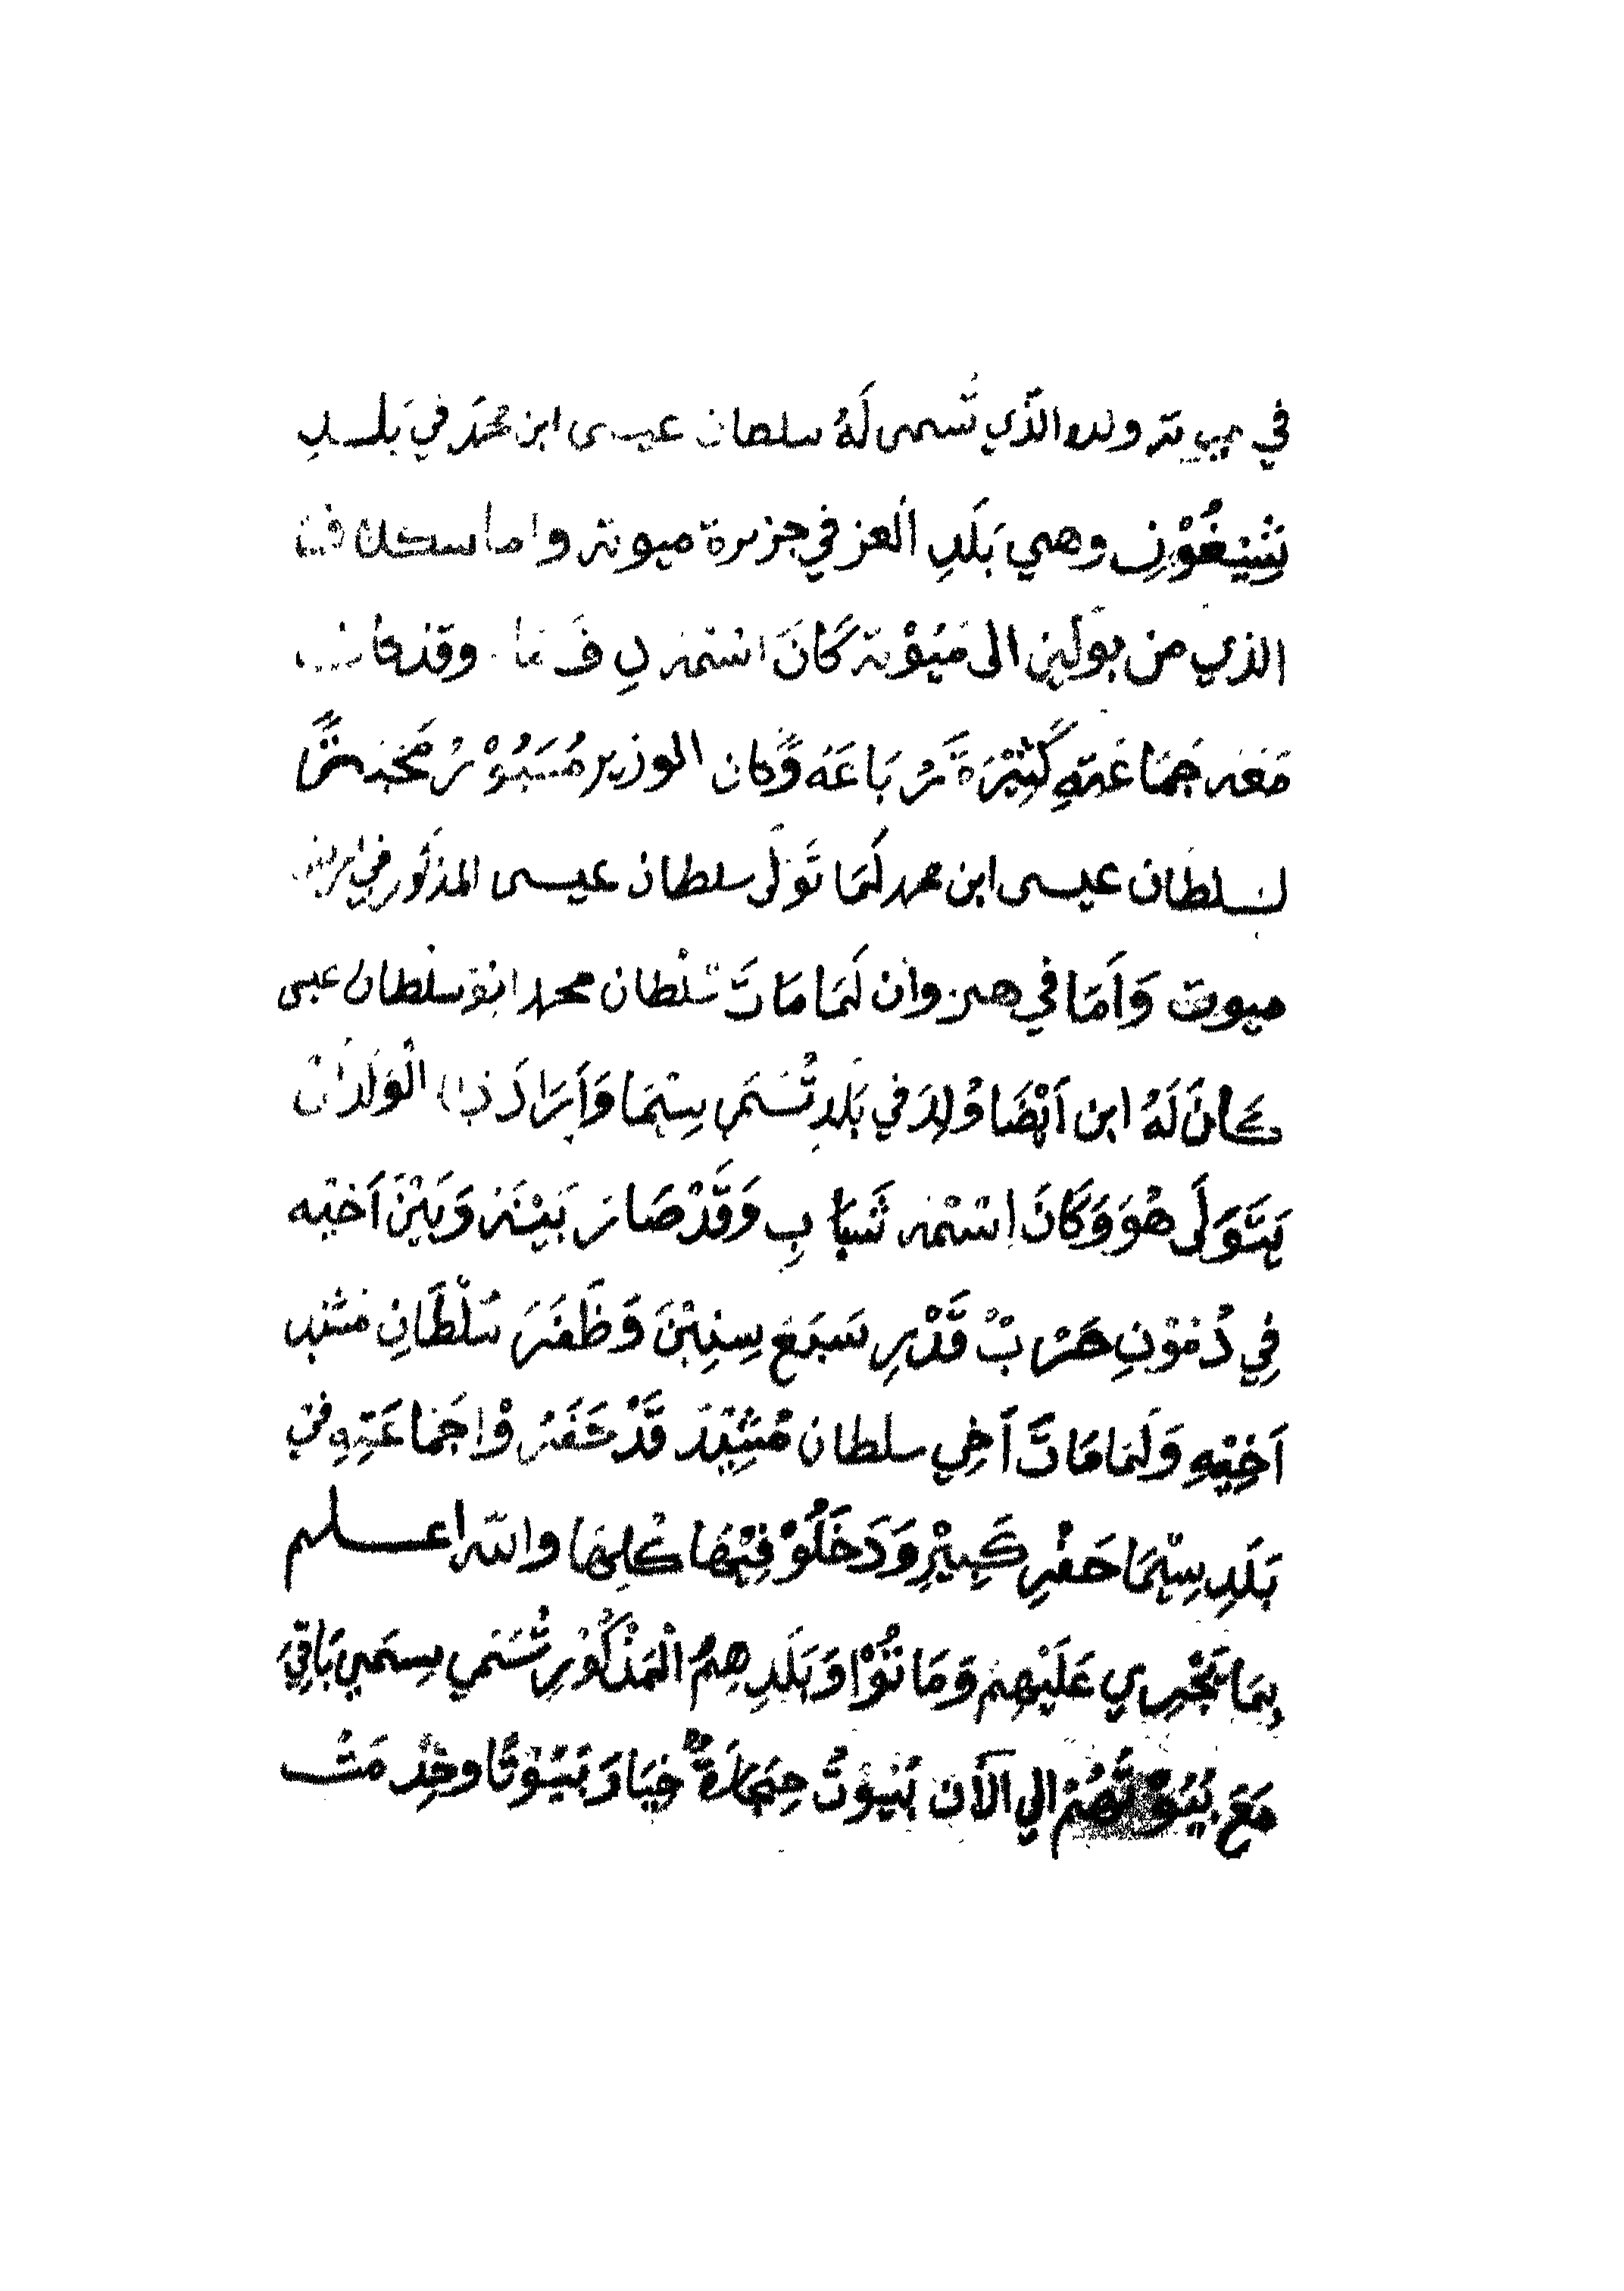 في ميوتة ولده الذّي تُسمى لَهُ سلطان عيسى ابن محمدَ في بَلَـــدِ
تِثِيْنغُوْنِ وهي بَلَدِ العز في جزيرة ميوتة واما سكلاف
الذي من بَوَلِين الى مَيُوْتة كَانَ اسْمُه دِ فَ مَا وقد كان
مَعَه جَمَاعَتهِ كَثِيْرَةَ مُرْبَاعَه وَكان الوزير مُسَبُوْرُ مُخْبِرًا
لسلطان عيسى ابن محمد لَمَا تَوَلَى سلطان عيسى المذكور في ارض
ميوت وَاَمَا في هنزوان لَمَا مَاتَ سُلْطان محمد ابو سلْطان عيسى
كَانَ لَهُ ابن اَيْضَا وُلِدَ في بَلَدِ تُسَمَى سِيْمَا وَاَرَادَ ذا الْوَلَدُ انْ
يَتَوَلَى هُوَ وَكَانَ اِسْمُه شَبَابِ وَقَدْ صَارَ بَيْنَه وَبَيْنَ اَخيْه
فِي دُمُوْنِ حَرْبٌ قَدْرِ سَبَعَ سِنِيْنَ وَظَفَرَ سُلْطَانِ مثند
اَخِيْهِ وَلَما مَاتَ اَخِي سلطان مُثِيْنَد قَدْ حَفَرُوْا جَمَاعَتِهِ في
بَلَدِ سِيْمَا حَفْرِ كَبِيْرِ وَدَخَلُوْ فِيْهَا كُلِهَا والله اعـــلم
بِمَا يَجْرِي عَلَيْهِمْ وَمَاتُوْا وَبَلَدِهِمُ الْمَذْكُوْرِ تُسَمي سِيمَي بَاقِيَ
مَعَ بُيُوْتَهُمْ الي الآن بُيُوْتُ حِجَارَةٌ خِيَارَ بُيُوْتًا وخِدْمَتْ